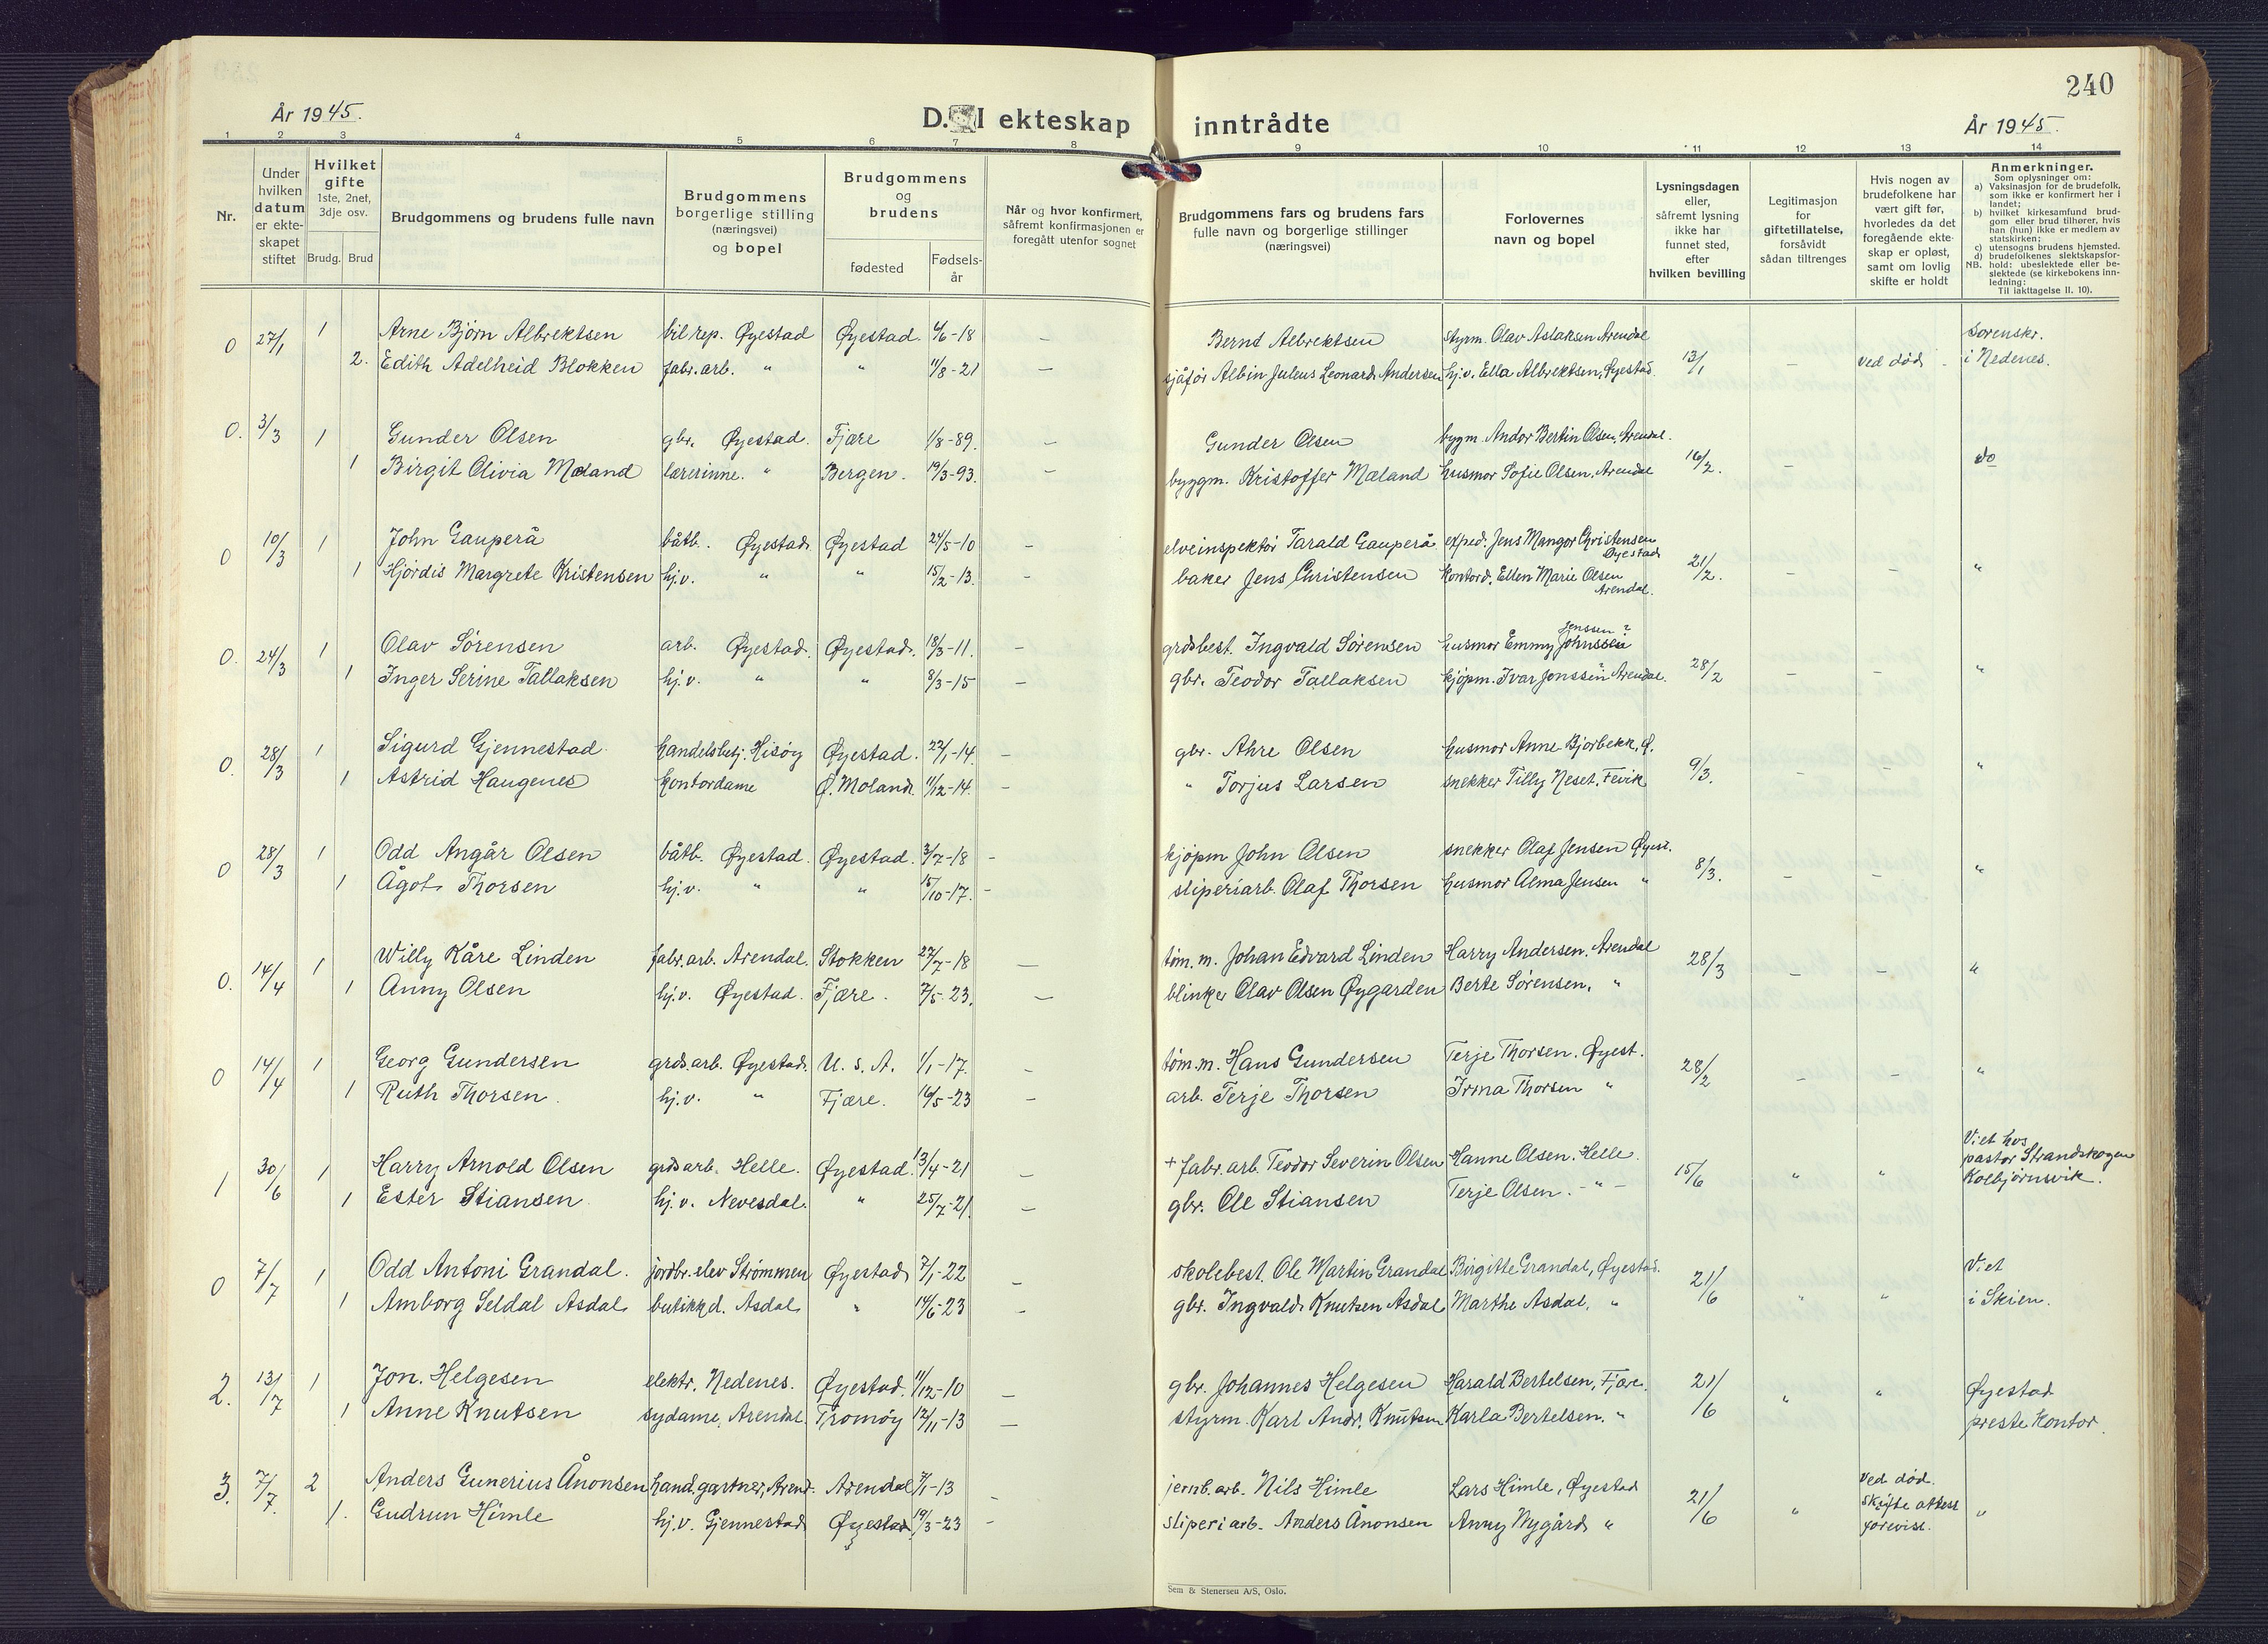 240
År 1945.
D. I ekteskap inntrådte
År 1945.
1 2 3 4 5 6 7 8 9 10 11 12 13 14
Nr.
Under hvilken datum er ekteskapet stiftet
Hvilket gifte 1ste, 2net, 3dje osv.
Brudg. Brud
Brudgommens og brudens fulle navn
Brudgommens borgerlige stilling (næringsvei) og bopel
Brudgommens og brudens
fødested
Fødselsår
Når og hvor konfirmert, såfremt konfirmasjonen er foregått utenfor sognet
Brudgommens fars og brudens fars fulle navn og borgerlige stillinger (næringsvei)
Forlovernes navn og bopel
Lysningsdagen eller, såfremt lysning ikke har funnet sted, efter hvilken bevilling
Legitimasjon for giftetillatelse, forsåvidt sådan tiltrenges
Hvis nogen av brudefolkene har vært gift før, hvorledes da det foregående ekteskap er opløst, samt om lovlig skifte er holdt
Anmerkninger.
Som oplysninger om:
a) Vaksinasjon for de brudefolk, som ikke er konfirmert her i landet;
b) hvilket kirkesamfund brudgom eller brud tilhører, hvis han (hun) ikke er medlem av statskirken;
c) utensogns brudens hjemsted.
d) brudefolkenes slektskapsforhold: ubeslektede eller beslektede (se kirkebokens innledning:
NB.
Til iakttagelse II. 10).
0 27/1 1 Arne Bjørn Albrektsen bil rep. Øyestad Øyestad 4/6-18 — Bernt Albrektsen styrm. Olav Aslaksen Arendal Sorenskr.
2. Edith Adelheid Blokken fabr. arb. " " 11/8-21 — sjåfør Albin Juleus Leonard Andersen hj.v. Ella Albrektsen, Øyestad 13/1 — Ved død i Nedenes.
0. 3/3 1 Gunder Olsen gbr. Øyestad. Fjære 1/8-89. — Gunder Olsen bygm. Andor Bertin Olsen, Arendal.
1 Birgit Olivia Mæland lærerinne. " Bergen. 19/3-93. — byggm. Kristoffer Mæland husmor Sofie Olsen, Arendal 16/2. — do
0 10/3 1 John Gauperå båtb. Øyestad Øyestad 24/5-10 — elveinspektør Tarald Gauperå exped. Jens Mangor Christensen Øyestad
1 Hjørdis Margrete Kristensen hj.v. " " 15/2-13. — baker Jens Christensen kontord. Ellen Marie Olsen Arendal. 21/2. — — "
0. 24/3 1 Olav Sørensen arb. Øyestad. Øyestad. 18/3-11. — grdsbest. Ingvald Sørensen husmor Emmy Johnssen Jenssen?
1 Inger Serine Tallaksen hj.v. " " 8/3-15 — gbr. Teodor Tallaksen kjøpm. Ivar Jonssen? Arendal. 28/2 — — "
0. 28/3 1 Sigurd Gjennestad handelsbetj. Hisøy Øyestad. 22/1-14. — gbr. Ahre Olsen husmor Anne Bjorbekk, Ø.
1 Astrid Haugenes kontordame Ø. Moland. 11/12-14. — " Torjus Larsen snekker Tilly Neset, Fevik 9/3. — — "
0 28/3 1 Odd Angår Olsen båtb. Øyestad. Øyestad. 3/7-18 — kjøpm John Olsen snekker Olaf Jensen Øyest.
1 Ågot Thorsen hj.v. " " 15/10-17. — sliperiarb. Olaf Thorsen husmor Alma Jensen " 8/3. — — "
0. 14/4 1 Willy Kåre Linden fabr. arb. Arendal. Stokken 27/7-18 — tøm. m. Johan Edvard Linden Harry Andersen. Arendal
1 Anny Olsen hj.v. Øyestad. Fjære. 7/5-23. — blinker Olav Olsen Øygarden Berte Sørensen, " 28/3 — — "
0 14/4 1 Georg Gundersen grds.arb. Øyestad. U.S.A. 1/1-17. — tøm. m. Hans Gundersen Terje Thorsen. Øyest.
1 Ruth Thorsen. hj.v. " Fjære. 16/5-23 — arb. Terje Thorsen Irma Thorsen " 28/2 — — "
1 30/6 1 Harry Arnold Olsen grdsarb. Helle. Øyestad. 13/4-21 — + fabr. arb. Teodor Severin Olsen Hanne Olsen. Helle. Viet hos pastor Strandskogen Kolbjørnsvik.
1 Ester Stiansen hj.v. Nevesdal. " 25/7-21. — gbr. Ole Stiansen Terje Olsen. - " - 15/6 " "
0 7/7 1 Odd Antoni Grandal. jordbr. elev Strømmen Øyestad 7/1-22 — skolebest. Ole Martin Grandal Birgitte Grandal, Øyestad. Viet
1 Amborg Seldal Asdal butikkd. Asdal " 14/6-23 — gbr. Ingvald Knutsen Asdal Marthe Asdal, " 21/6 " " i Skien.
2. 13/7 1 Jon. Helgesen elektr. Nedenes. Øyestad. 11/12-10 — gbr. Johannes Helgesen Harald Bertelsen, Fjære. Øyestad
1 Anne Knutsen sydame, Arendal. Tromøy 12/11-13 — styrm. Karl Andr. Knutsen Karla Bertelsen. " 21/6 " " prestekontor.
3. 7/7. 2 Anders Gunerius Ånonsen hand.gartner, Arend. Arendal 7/1-13 — jernb. arb. Nils Himle Lars Himle, Øyestad Ved død.
1. Gudrun Himle hj.v. Gjennestad Øyestad 19/3-23 — sliperiarb. Anders Ånonsen Anny Nygård " 21/6 " Skifte attest forevist. "
Sem & Stenersen A/S, Oslo.